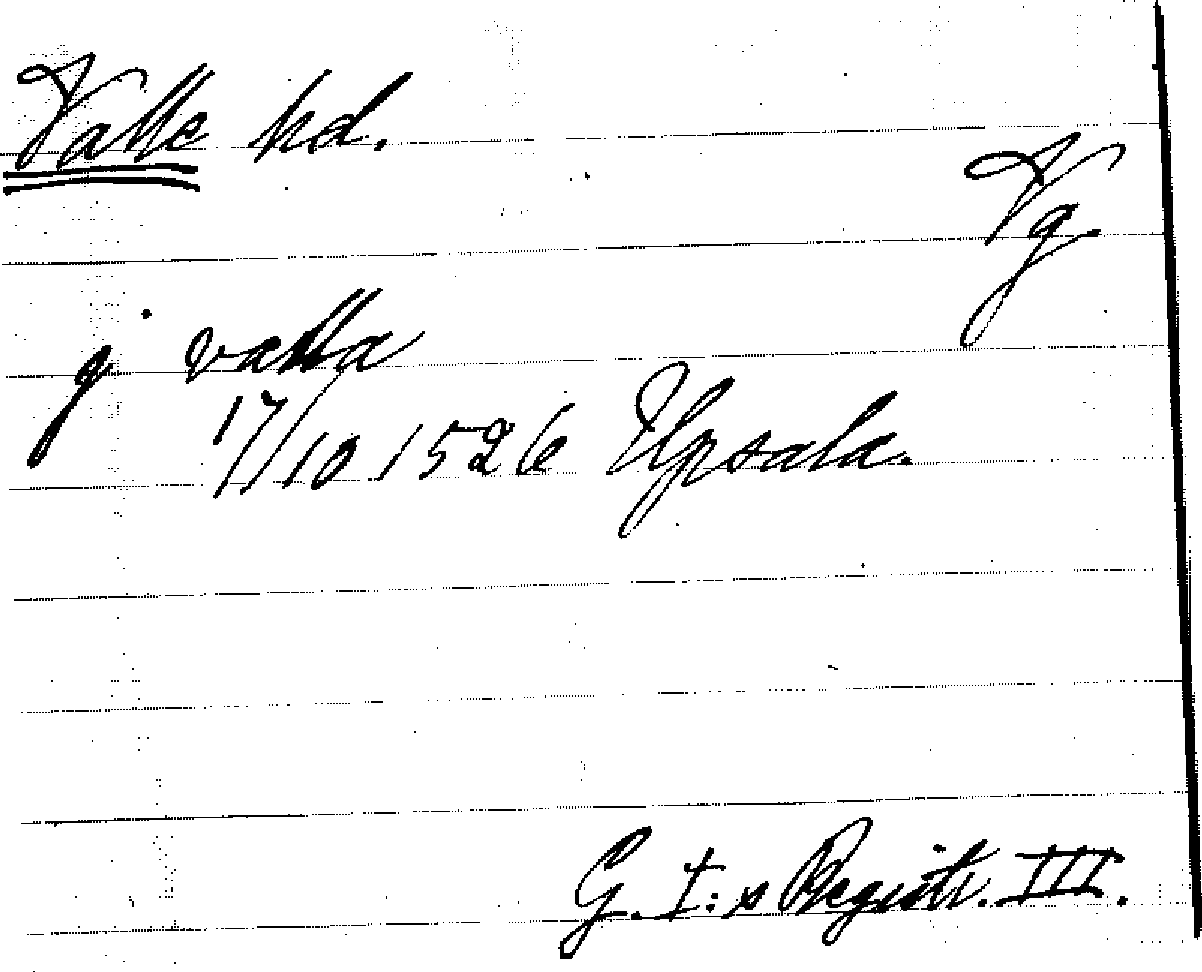 Valle hd.
Vg
j valla
17/10 1526 Upsala.
G. I:s Registr. III.